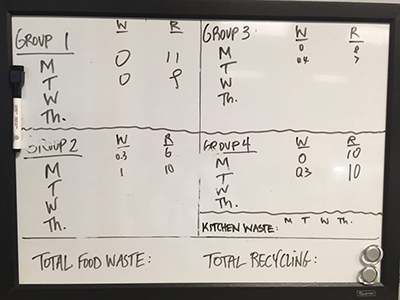 GROUP 1 W R
M 0 11
T 0 9
W
Th.
GROUP 3 W R
M 0 8
T 0.4 7
W
Th.
GROUP 2 W R
M 0.3 6
T 1 10
W
Th.
GROUP 4 W R
M 0 10
T 0.3 10
W
Th.
KITCHEN WASTE: M T W Th.
TOTAL FOOD WASTE:
TOTAL RECYCLING: